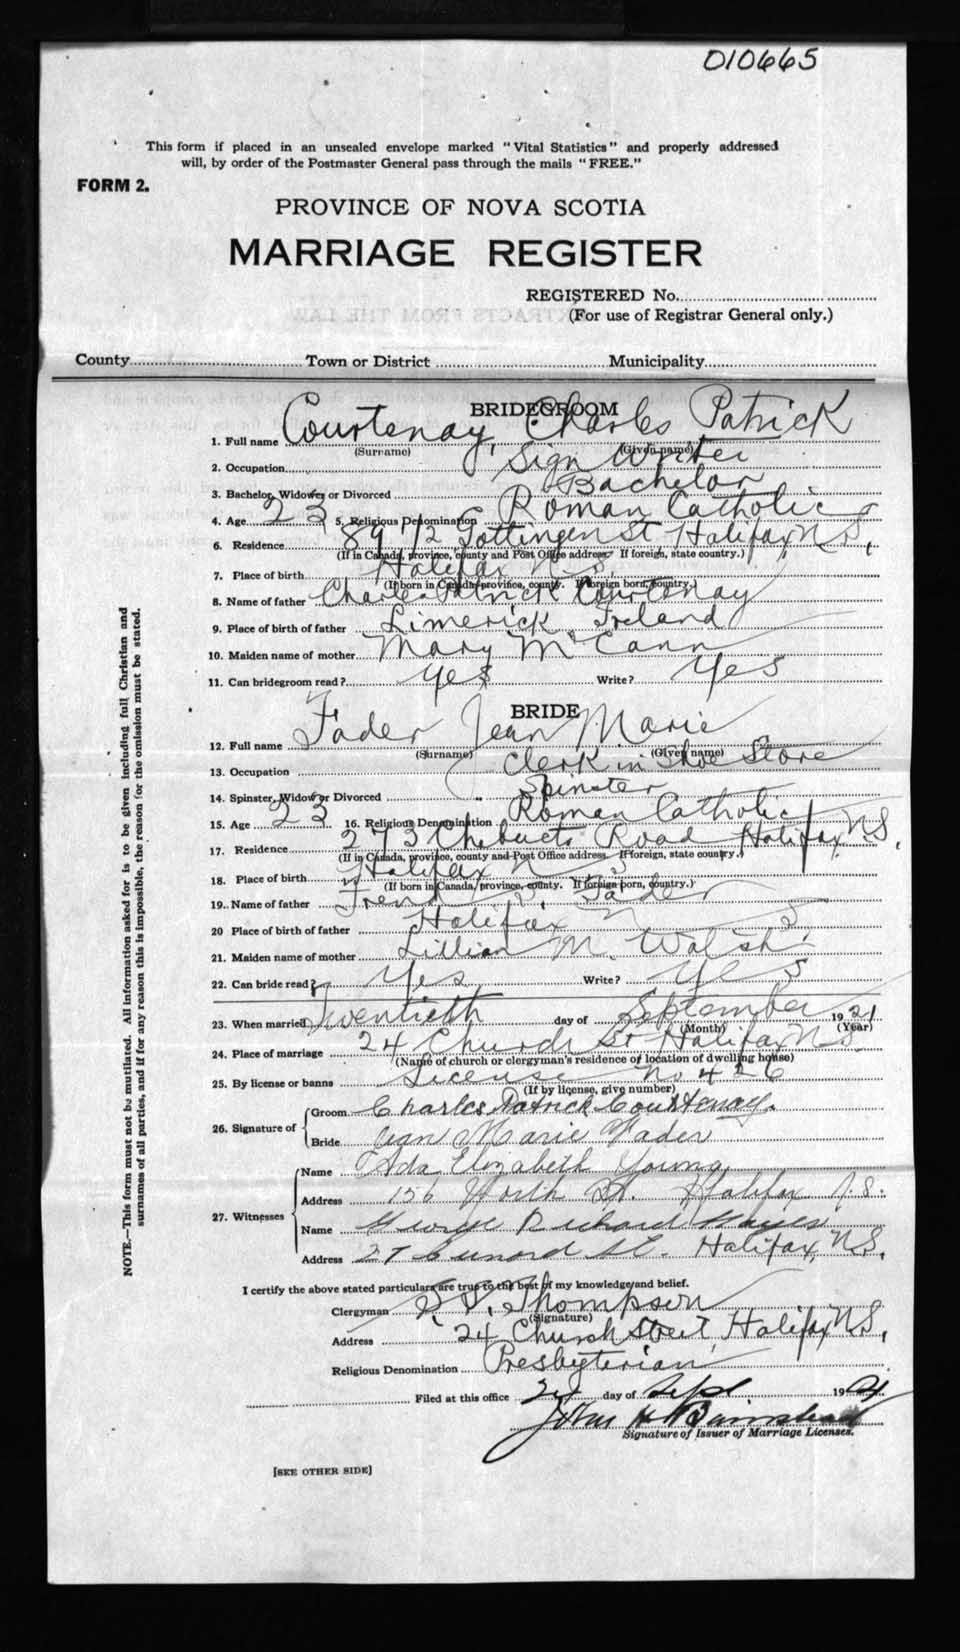 010665
This form if placed in an unsealed envelope marked "Vital Statistics" and properly addressed
will, by order of the Postmaster General pass through the mails "FREE."
FORM 2.
PROVINCE OF NOVA SCOTIA
MARRIAGE REGISTER
REGISTERED No.
(For use of Registrar General only.)
County Town or District Municipality
BRIDEGROOM
1. Full name Courtenay, Charles Patrick
(Surname) (Given name)
2. Occupation Sign Writer
3. Bachelor, Widower or Divorced Bachelor
4. Age 23 5. Religious Denomination Roman Catholic
6. Residence 89 1/2 Gottingen St Halifax N.S.
(If in Canada, province, county and Post Office address. If foreign, state country.)
7. Place of birth Halifax N S
(If born in Canada, province, county. If foreign born, country.)
8. Name of father Charles Patrick Courtenay
9. Place of birth of father Limerick Ireland
10. Maiden name of mother Mary McCann
11. Can bridegroom read? Yes Write? Yes
BRIDE
12. Full name Fader Jean Marie
(Surname) (Given name)
13. Occupation Clerk in Shoe Store
14. Spinster, Widow or Divorced Spinster
15. Age 23 16. Religious Denomination Roman Catholic
17. Residence 273 Chebucto Road Halifax N.S.
(If in Canada, province, county and Post Office address. If foreign, state country.)
18. Place of birth Halifax N S
(If born in Canada, province, county. If foreign born, country.)
19. Name of father Fader
20 Place of birth of father Halifax N S.
21. Maiden name of mother Lillian M. Walsh
22. Can bride read? Yes Write? Yes
23. When married Twentieth day of September 1921
(Month) (Year)
24. Place of marriage 24 Church St Halifax N S
(Name of church or clergyman's residence or location of dwelling house)
25. By license or banns License No 426
(If by license, give number)
26. Signature of Groom Charles Patrick Courtenay.
Bride Jean Marie Fader
27. Witnesses Name Ada Elizabeth Young
Address 156 North St. Halifax N.S.
Name George Richard Hayes
Address 27 Cunard St. Halifax, N.S.
I certify the above stated particulars are true to the best of my knowledge and belief.
Clergyman Thompson
(Signature)
Address 24 Church Street, Halifax N.S.
Religious Denomination Presbyterian
Filed at this office day of Sept 1921
John H Barnstead
Signature of Issuer of Marriage Licenses.
[SEE OTHER SIDE]
NOTE.—This form must not be mutilated. All information asked for is to be given including full Christian and
surnames of all parties, and if for any reason this is impossible, the reason for the omission must be stated.